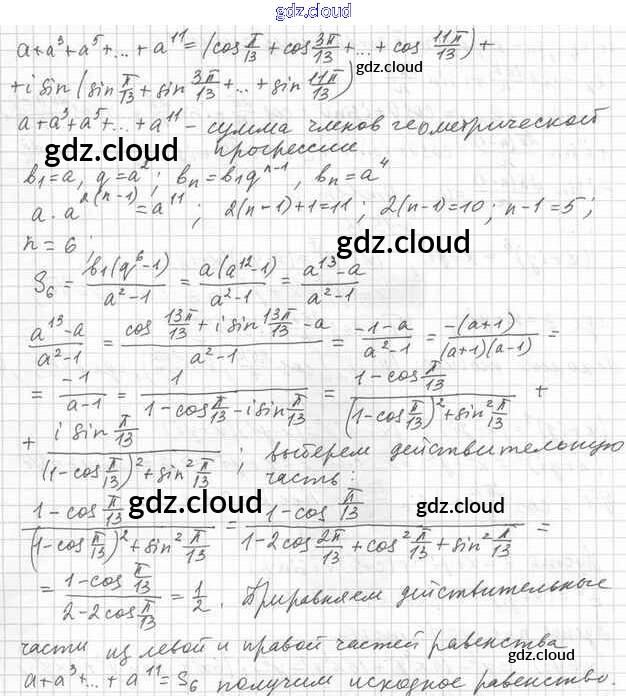 gdz.cloud
a+a³+a⁵+...+a¹¹=(cos π/13 + cos 3π/13 +...+ cos 11π/13)+
gdz.cloud
+i sin(sin π/13 + sin 3π/13 +...+ sin 11π/13)
a+a³+a⁵+...+a¹¹ - сумма членов геометрической
gdz.cloud прогрессии gdz.cloud
b₁=a, q=a²; bₙ=b₁qⁿ⁻¹, bₙ=a¹¹
a·a²⁽ⁿ⁻¹⁾=a¹¹; 2(n-1)+1=11; 2(n-1)=10; n-1=5;
n=6; gdz.cloud
S₆ = b₁(q⁶-1)/(a²-1) = a(a¹²-1)/(a²-1) = (a¹³-a)/(a²-1)
(a¹³-a)/(a²-1) = (cos 13π/13 + i sin 13π/13 - a)/(a²-1) = (-1-a)/(a²-1) = -(a+1)/((a+1)(a-1)) =
= -1/(a-1) = 1/(1-cos π/13 - i sin π/13) = (1-cos π/13)/((1-cos π/13)²+sin² π/13) +
+ (i sin π/13)/((1-cos π/13)²+sin² π/13); выберем действительную
часть:
gdz.cloud gdz.cloud
(1-cos π/13)/((1-cos π/13)²+sin² π/13) = (1-cos π/13)/(1-2cos 2π/13 + cos² π/13 + sin² π/13) =
gdz.cloud
= (1-cos π/13)/(2-2cos π/13) = 1/2. Приравняем действительные
части из левой и правой частей равенства
gdz.cloud gdz.cloud
a+a³+...+a¹¹=S₆ получим исходное равенство.